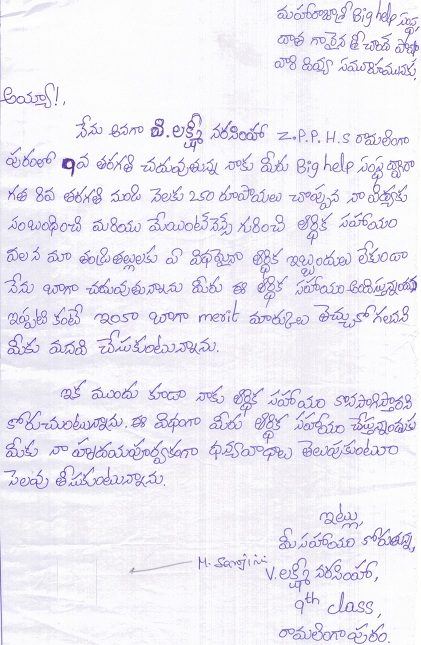 మహారాజశ్రీ Big help సంస్థ,
దాత గారైన శ్రీ చాంద్ పాషా
వారి దివ్య సముఖమునకు.
అయ్యా!,
నేను అనగా వి. లక్ష్మీ నరసింహా Z.P.P.H.S రామలింగా
పురంలో 9వ తరగతి చదువుతున్న నాకు మీరు Big help సంస్థ ద్వారా
గత 8వ తరగతి నుండి నెలకు 250 రూపాయలు చొప్పున నా విద్యకు
సంబంధించి మరియు మెయింటెనెన్స్ గురించి ఆర్థిక సహాయం
వలన మా తండ్రితల్లులకు ఏ విధమైనా ఆర్థిక ఇబ్బందులు లేకుండా
నేను బాగా చదువుతున్నాను మీరు ఈ ఆర్థిక సహాయం అందిస్తున్నందుకు
ఇప్పటి కంటే ఇంకా బాగా merit మార్కులు తెచ్చుకోగలనని
మీకు మనవి చేసుకుంటున్నాను.
ఇక ముందు కూడా నాకు ఆర్థిక సహాయం కొనసాగిస్తారని
కోరుచుంటున్నాను. ఈ విధంగా మీరు ఆర్థిక సహాయం చేస్తున్నందుకు
మీకు నా హృదయపూర్వకంగా ధన్యవాదాలు తెలుపుకుంటూ
సెలవు తీసుకుంటున్నాను.
ఇట్లు,
మీ సహాయం కోరుతున్న,
M. Sarojini
V. లక్ష్మీ నరసింహా,
9th class,
రామలింగాపురం.